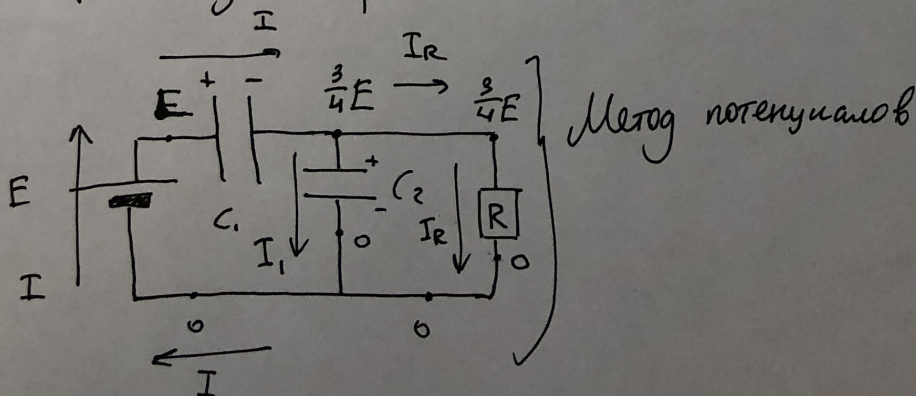 I
I_R
+ -
3/4 E
3/4 E
E
Метод потенциалов
E
+
C₂
-
C₁
R
I₁
0
I_R
0
I
0
0
I